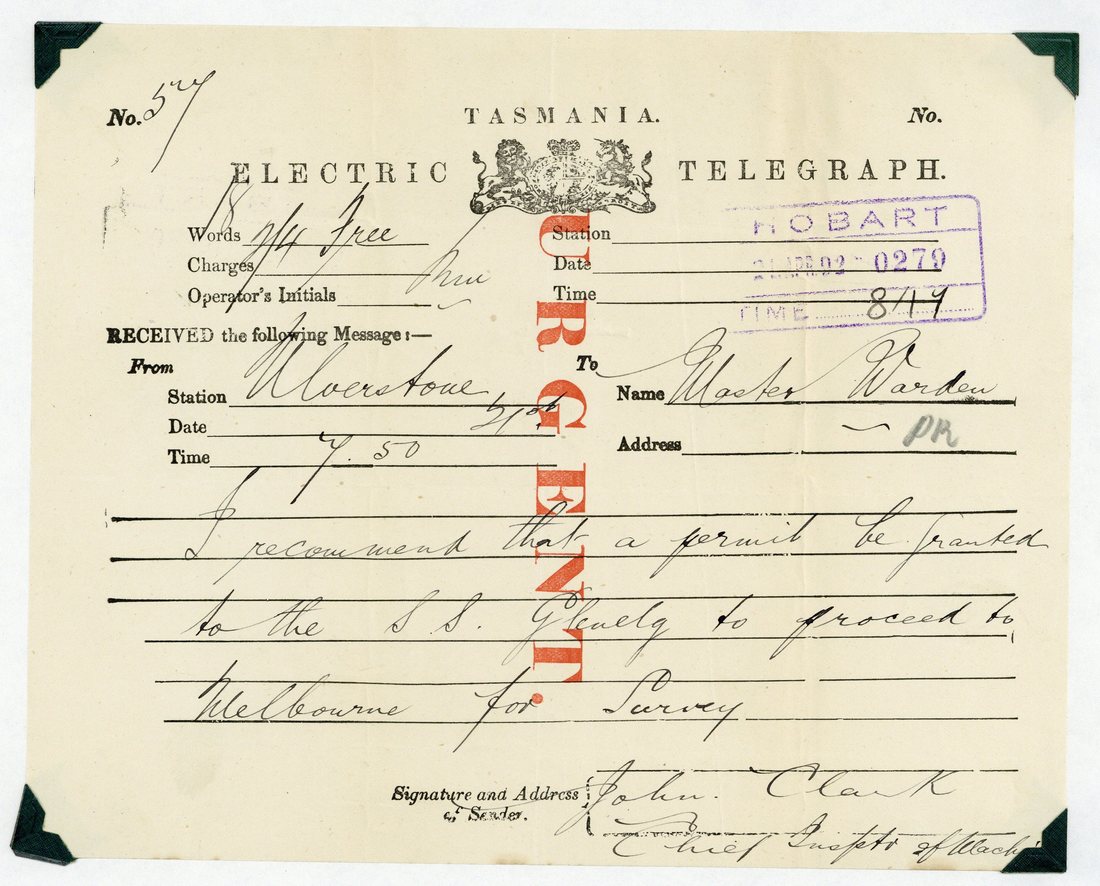 No. 57
TASMANIA.
No.
ELECTRIC TELEGRAPH.
URGENT.
HOBART
21 APR 92 0279
TIME 8/17
Words 18/14 Free
Charges
Operator's Initials
Station
Date
Time
RECEIVED the following Message:—
From
To
Station Ulverstone
Date 21st
Time 7.50
Name Master Warden
Address
I recommend that a permit be granted
to the S S. Glenelg to proceed to
Melbourne for Survey
Signature and Address
of Sender.
John Clark
Chief Insptr of Machi